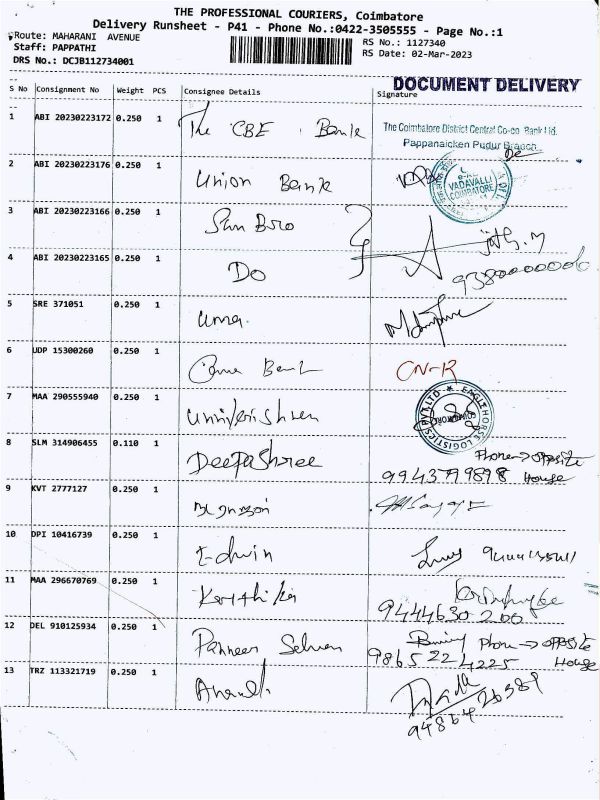 THE PROFESSIONAL COURIERS, Coimbatore
Delivery Runsheet - P41 - Phone No.:0422-3505555 - Page No.:1
Route: MAHARANI AVENUE
Staff: PAPPATHI
DRS No.: DCJB112734001
RS No.: 1127340
RS Date: 02-Mar-2023
DOCUMENT DELIVERY
S No Consignment No Weight PCS Consignee Details Signature
1 ABI 20230223172 0.250 1 The CBE . Bank
The Coimbatore District Central Co-op. Bank Ltd.
Pappanaicken Pudur Branch
2 ABI 20230223176 0.250 1 Union Bank
VADAVALLI
COIMBATORE
3 ABI 20230223166 0.250 1 Sun Bro
4 ABI 20230223165 0.250 1 Do
5 SRE 371051 0.250 1 Uma.
6 UDP 15300260 0.250 1 Bank CN-R
7 MAA 290555940 0.250 1
EAGLEHORSE LOGISTICS PVT LTD
8 SLM 314906455 0.110 1 DeepaShree
Phone → opposite
9943779898 House
9 KVT 2777127 0.250 1
10 DPI 10416739 0.250 1 Edwin
11 MAA 296670769 0.250 1 Karthika
9444630200
12 DEL 910125934 0.250 1 Panneer Selvan
Phone → opposite
9865224225 House
13 TRZ 113321719 0.250 1 Anand